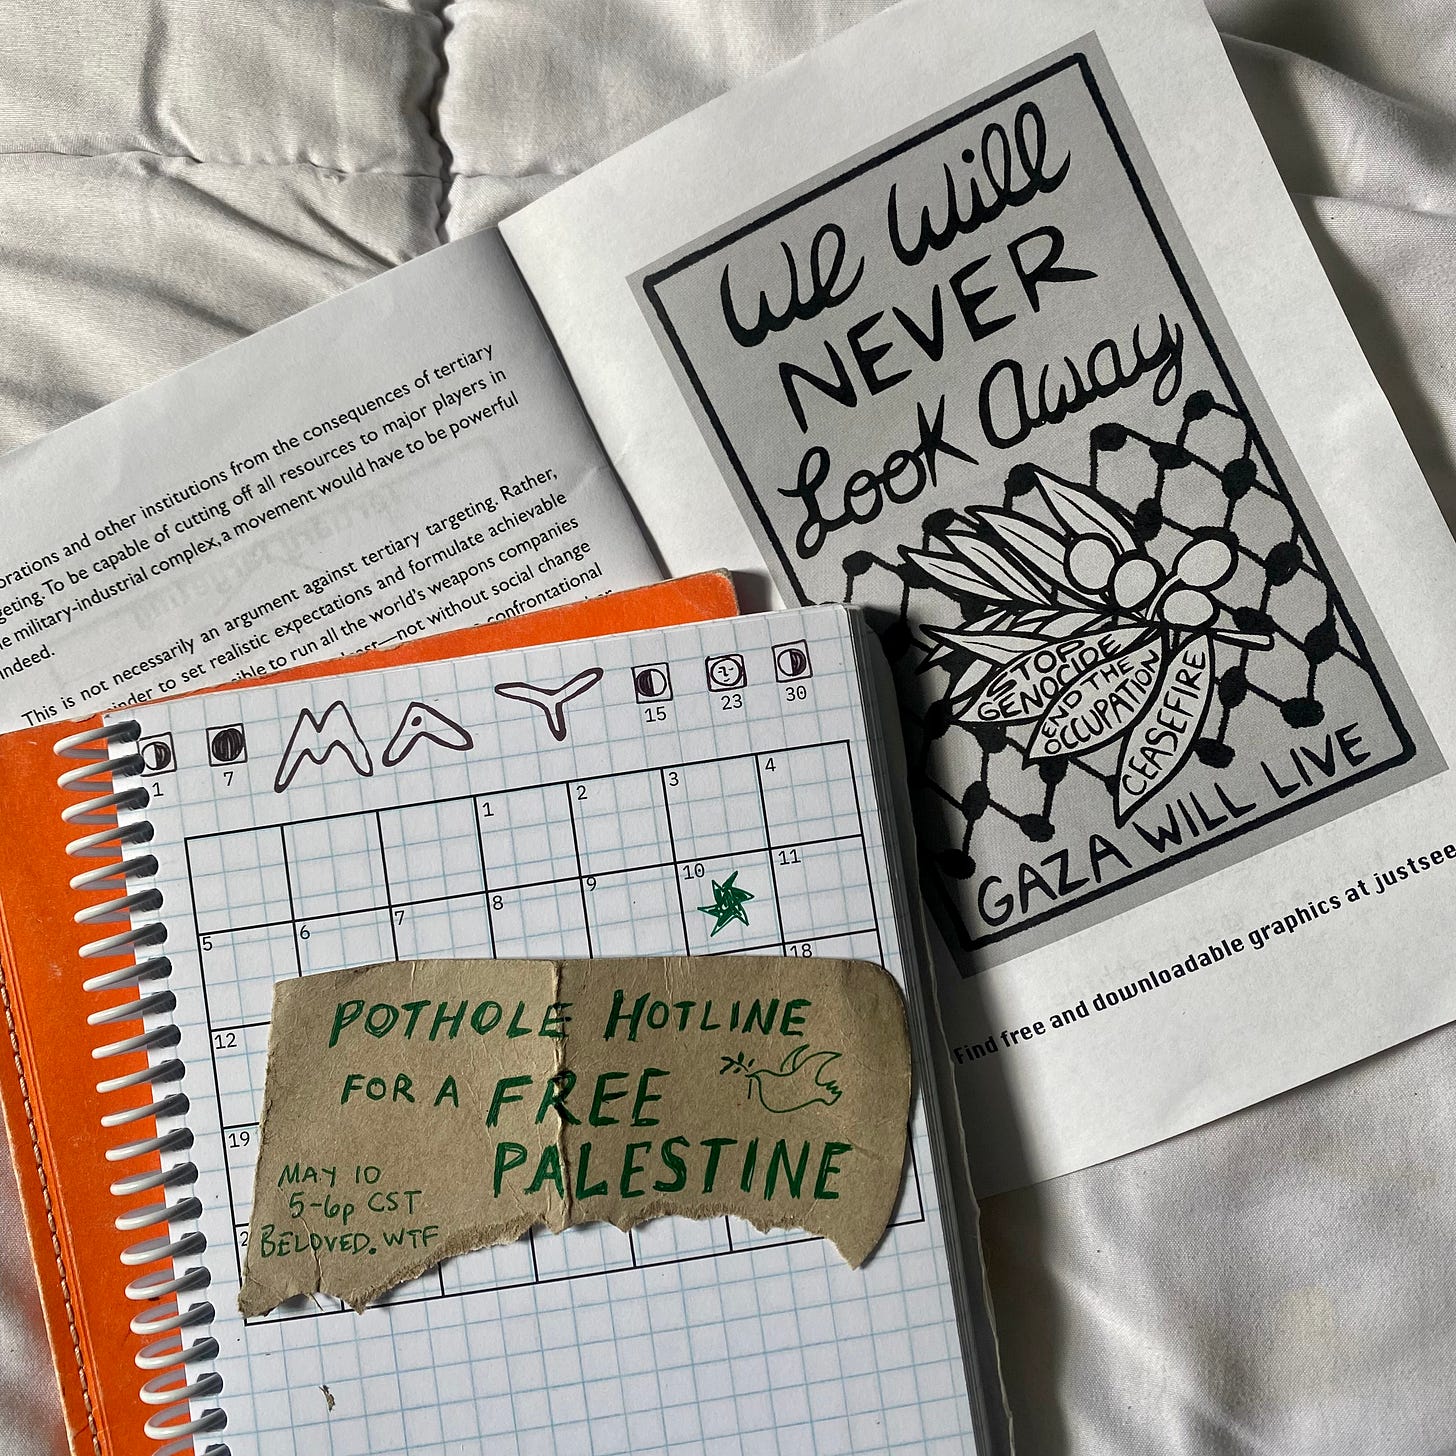 orations and other institutions from the consequences of tertiary
geting. To be capable of cutting off all resources to major players in
e military-industrial complex, a movement would have to be powerful
indeed.
This is not necessarily an argument against tertiary targeting. Rather,
inder to set realistic expectations and formulate achievable
sible to run all the world's weapons companies
—not without social change
confrontational
We Will
NEVER
Look Away
STOP
GENOCIDE
END THE
OCCUPATION
CEASEFIRE
GAZA WILL LIVE
Find free and downloadable graphics at justsee
MAY
1 7 15 23 30
1 2 3 4
5 6 7 8 9 10 11
12 18
19
2
POTHOLE HOTLINE
FOR A FREE
PALESTINE
MAY 10
5-6p CST
BELOVED.WTF